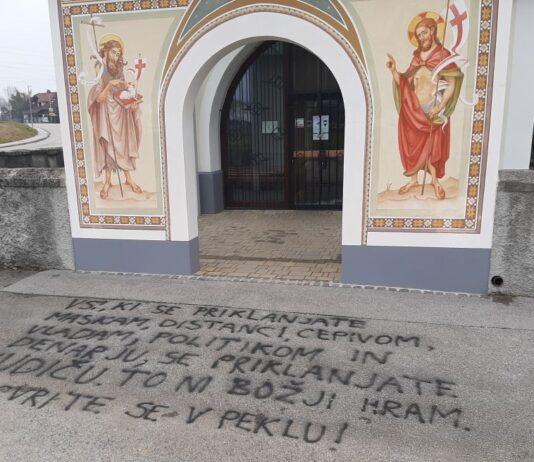 VSI, KI SE PRIKLANJATE
MASKAM, DISTANCI, CEPIVOM,
VLADAM, POLITIKOM IN
DENARJU, SE PRIKLANJATE
UDIČU. TO NI BOŽJI HRAM.
CVRITE SE V PEKLU!